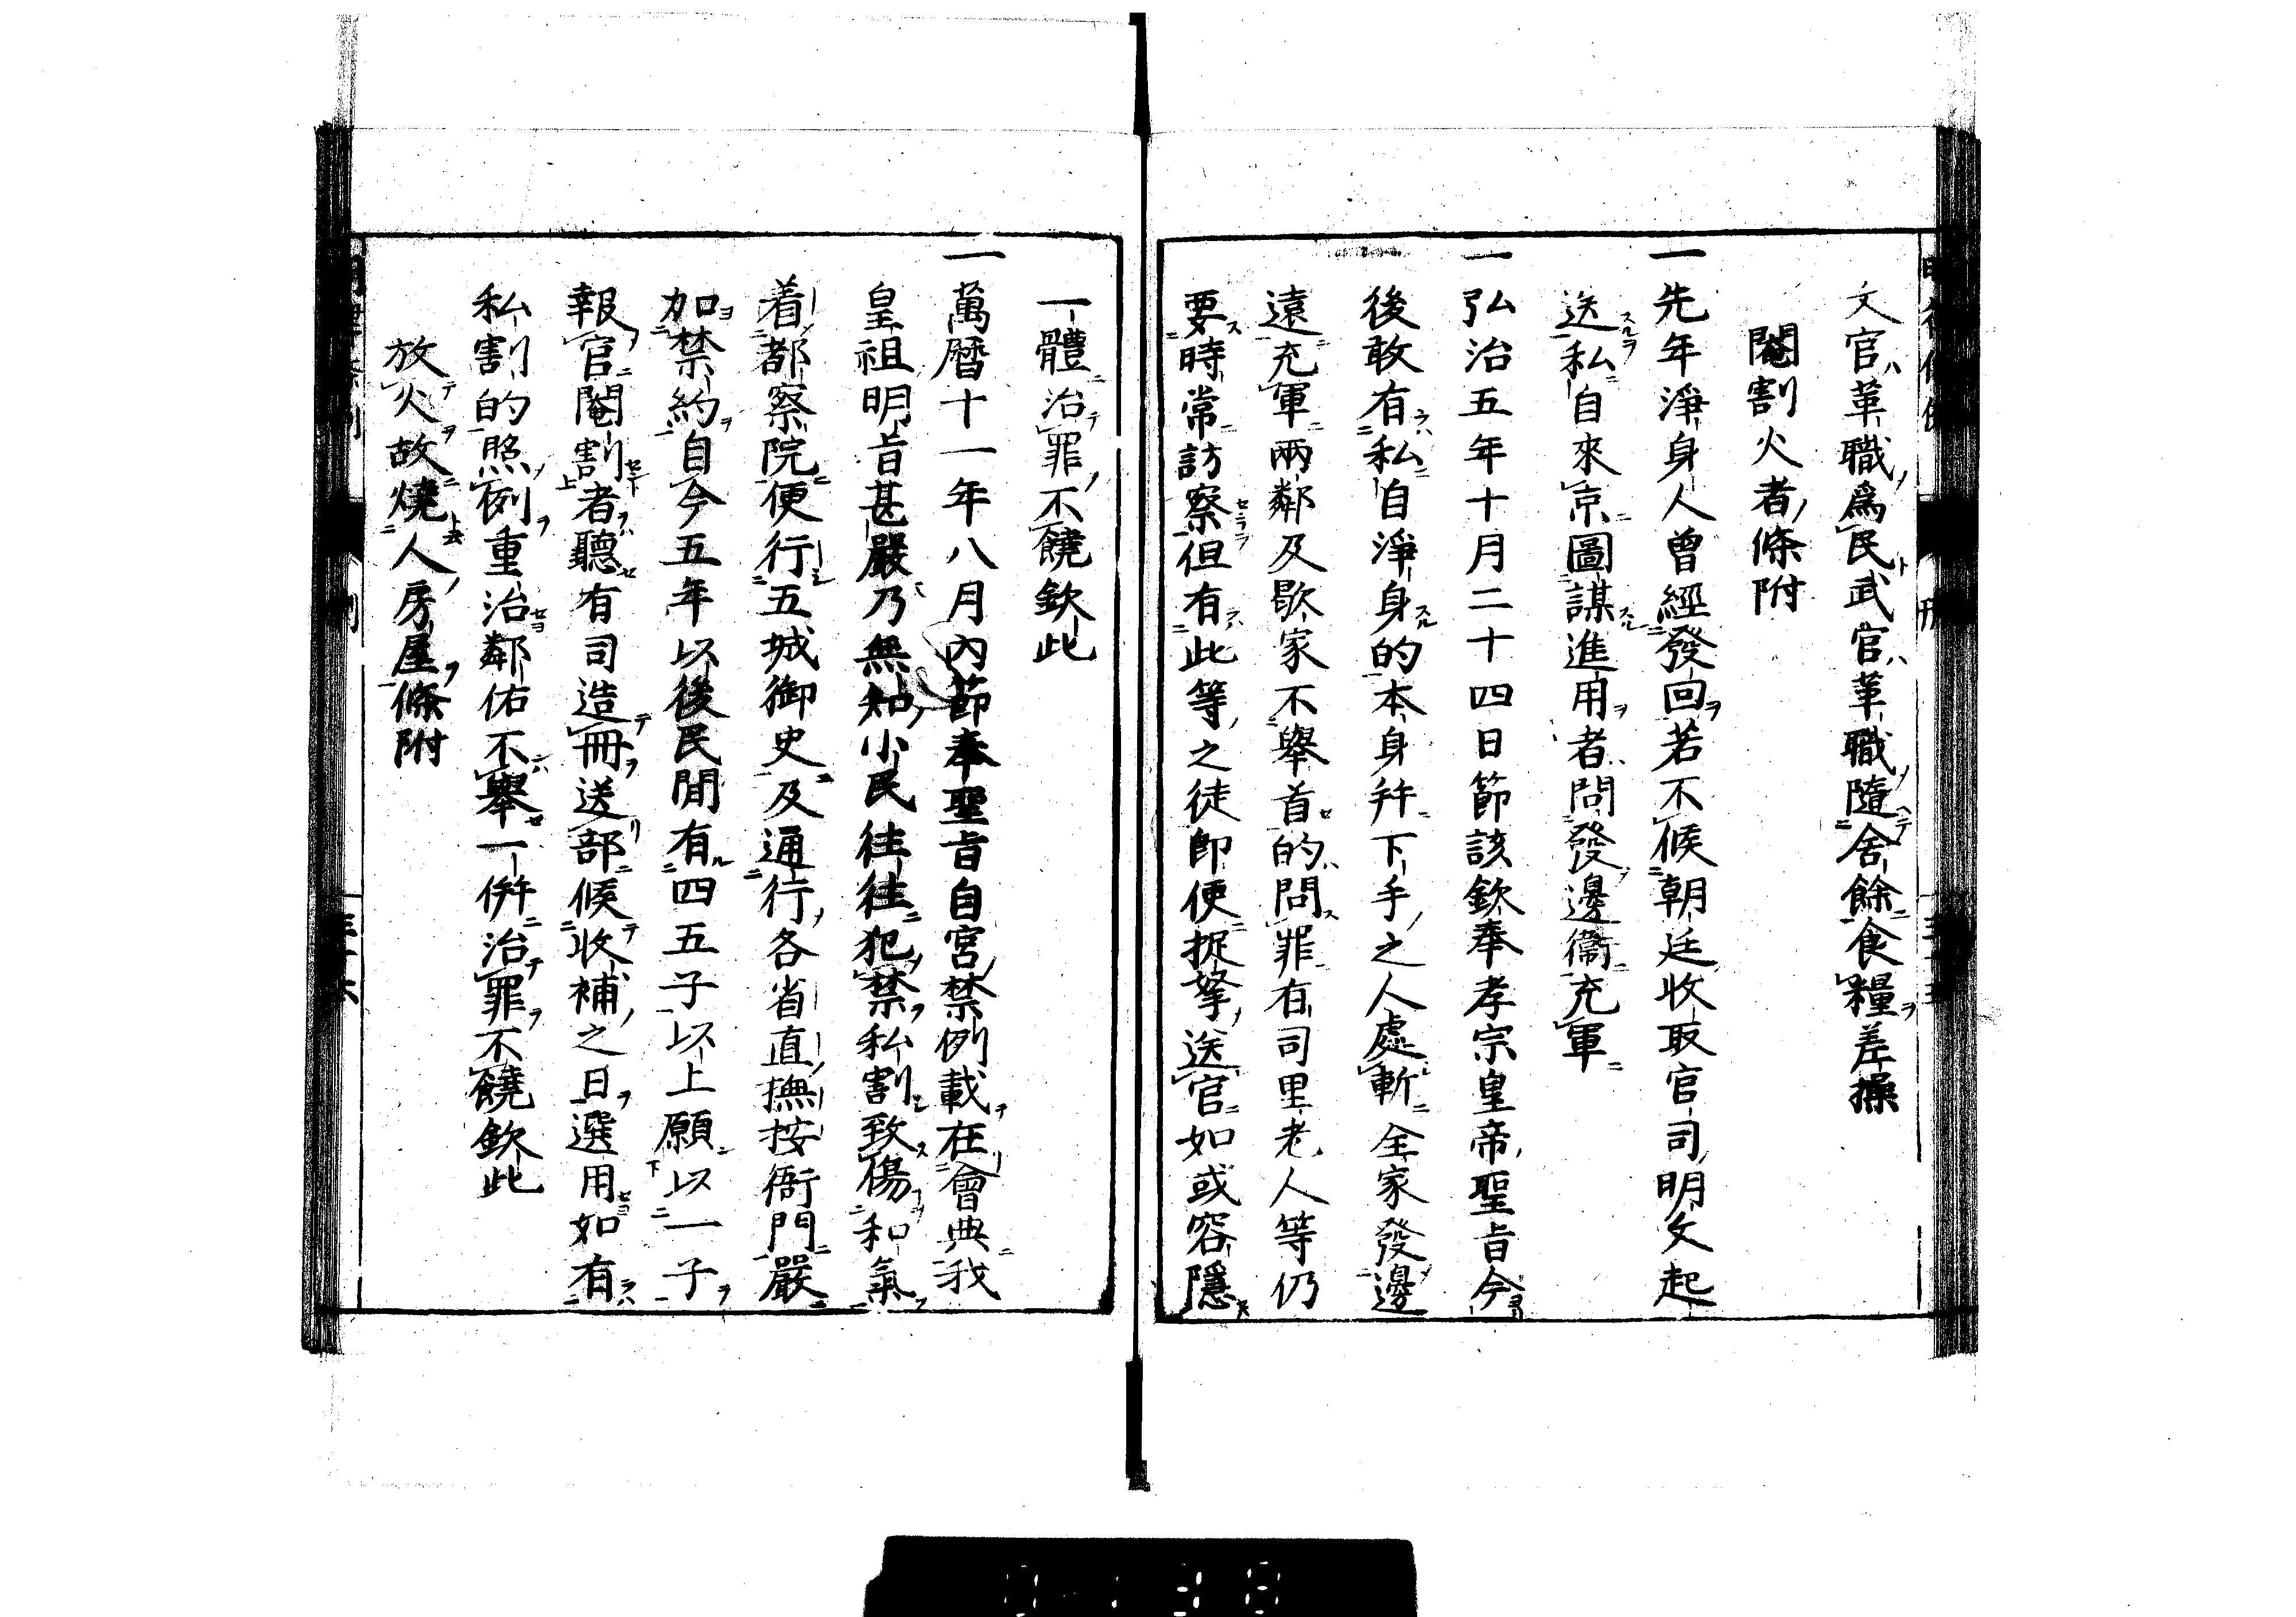 文官革職爲民武官革職隨舍餘食糧差操
閹割火者條附
一先年淨身人曾經發回若不候朝廷收取官司明文起
送私自來京圖謀進用者問發邊衞充軍
一弘治五年十月二十四日節該欽奉孝宗皇帝聖旨今
後敢有私自淨身的本身幷下手之人處斬全家發邊
遠充軍兩鄰及歇家不舉首的問罪有司里老人等仍
要時常訪察但有此等之徒即便捉拏送官如或容隱
一體治罪不饒欽此
一萬曆十一年八月內節奉聖旨自宮禁例載在會典我
皇祖明旨甚嚴乃無知小民往往犯禁私割致傷和氣
着都察院便行五城御史及通行各省直撫按衙門嚴
加禁約自今五年以後民間有四五子以上願以一子
報官閹割者聽有司造冊送部候收補之日選用如有
私割的照例重治鄰佑不舉一倂治罪不饒欽此
放火故燒人房屋條附